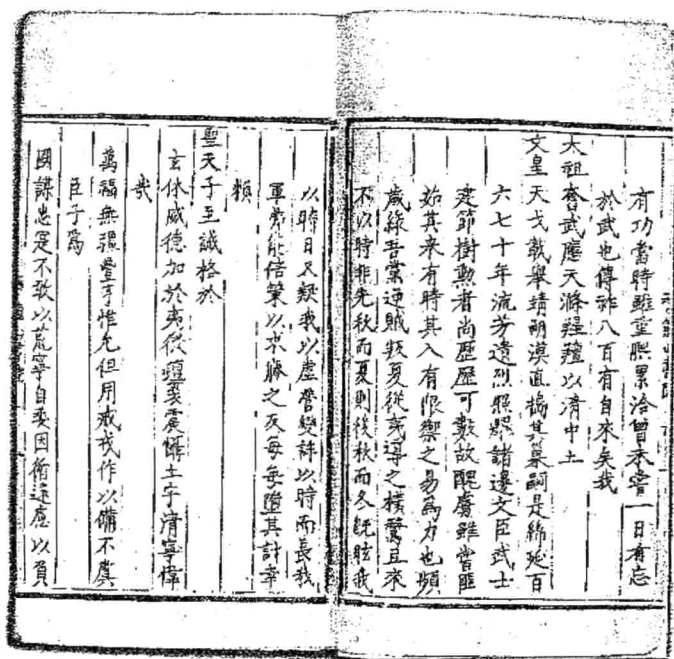 有功當時雖重熙累洽曾未嘗一日有忘
於武也傳祚八百有自來矣我
太祖奮武應天滌羶以清中土
文皇天戈載舉靖朔漠直搗其巢嗣是綿延百
六七十年流芳遺烈照縣諸邊文臣武士
建節樹勲者尚歷歷可數故醜虜雖嘗匪
茹其來有時其入有限禦之易爲力也頻
歲緣吾黨逆賊叛夏從夷導之橫驁且來
不以時非先秋而夏則後秋而冬既眩我
以時日又疑我以虛聲變詐以時而長我
軍弗能倍策以求勝之反每每墮其計幸
賴
聖天子至誠格於
玄休威德加於夷俗震懾土宇清寧偉
哉
萬福無疆疊亨惟允但用戒戎作以備不虞
臣子爲
國謀忠是不敢以荒寧自委因循逆應以負